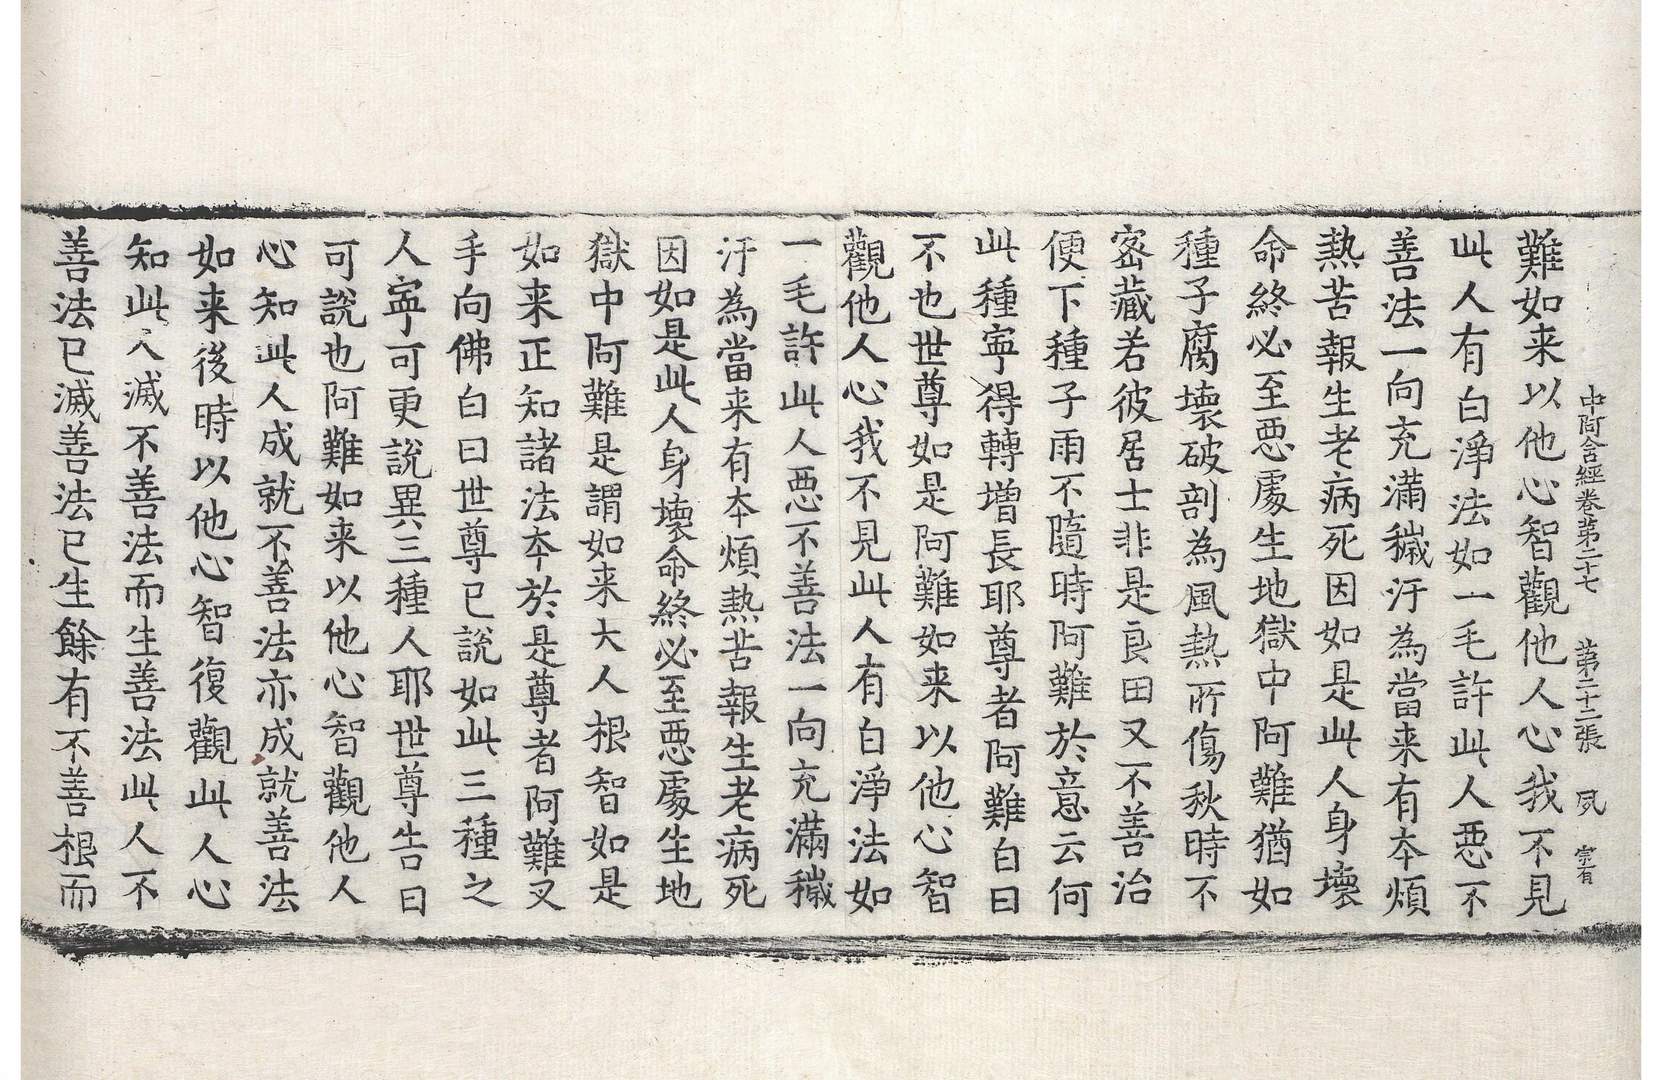 中阿含經卷第二十七 第二十二張 夙 宗有
難如来以他心智觀他人心我不見
此人有白淨法如一毛許此人惡不
善法一向充滿穢汙為當来有夲煩
熱苦報生老病死因如是此人身壞
命終必至惡處生地獄中阿難猶如
種子腐壞破剖為風熱所傷秋時不
密藏若彼居士非是良田又不善治
便下種子雨不隨時阿難於意云何
此種寧得轉增長耶尊者阿難白曰
不也世尊如是阿難如来以他心智
觀他人心我不見此人有白淨法如
一毛許此人惡不善法一向充滿穢
汙為當来有夲煩熱苦報生老病死
因如是此人身壞命終必至惡處生地
獄中阿難是謂如来大人根智如是
如来正知諸法夲於是尊者阿難叉
手向佛白曰世尊已說如此三種之
人寧可更說異三種人耶世尊告曰
可說也阿難如来以他心智觀他人
心知此人成就不善法亦成就善法
如来後時以他心智復觀此人心
知此人滅不善法而生善法此人不
善法已滅善法已生餘有不善根而